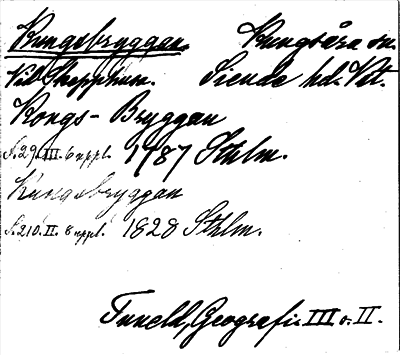 Kungsbryggan. Kungsåra sn.
Vid Skepphus. Siende hd. Vst.
Kongs-Bryggan
s. 29. III. 6 uppl. 1787 Sthlm.
Kungsbryggan
s. 210. II. 8 uppl. 1828 Sthlm.
Tuneld, Geografi. III o. II.